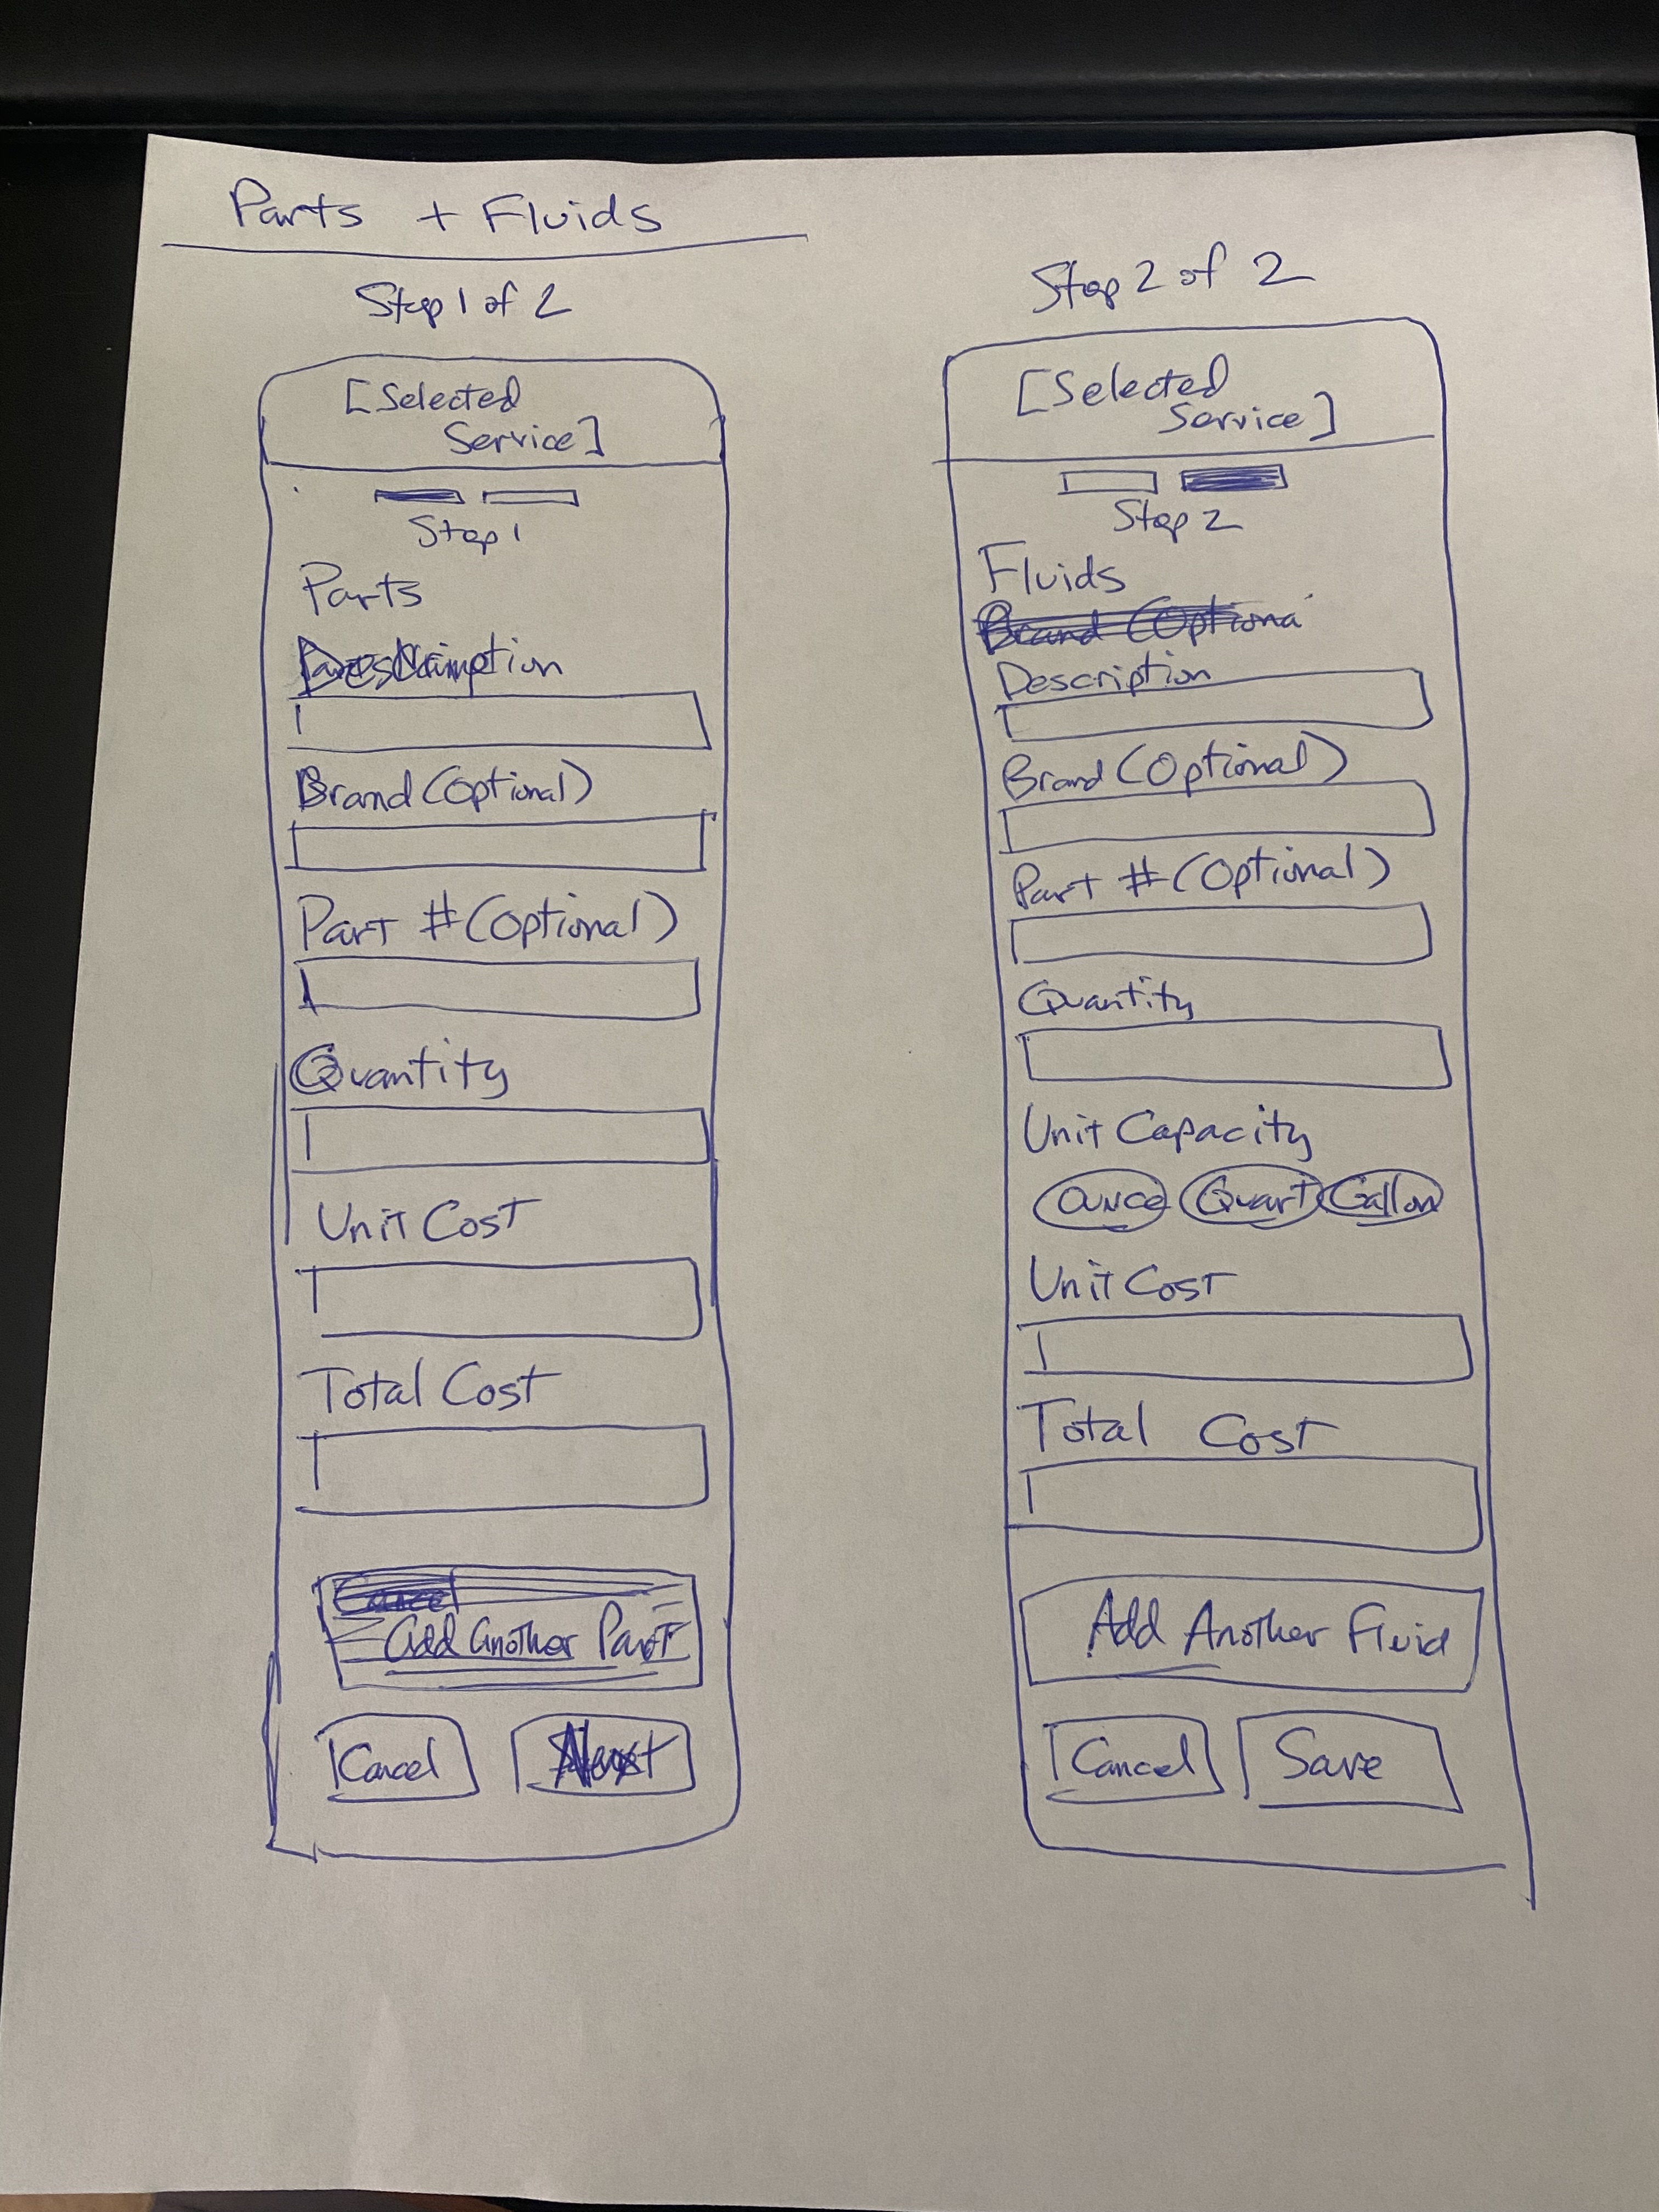 Parts + Fluids
Step 1 of 2
[Selected
Service]
Step 1
Parts
Description
Brand (Optional)
Part # (Optional)
Quantity
Unit Cost
Total Cost
Cancel
Add Another Part
Cancel
Next
Step 2 of 2
[Selected
Service]
Step 2
Fluids
Brand (Optiona
Description
Brand (Optional)
Part # (Optional)
Quantity
Unit Capacity
Ounce Quart Gallon
Unit Cost
Total Cost
Add Another Fluid
Cancel
Save